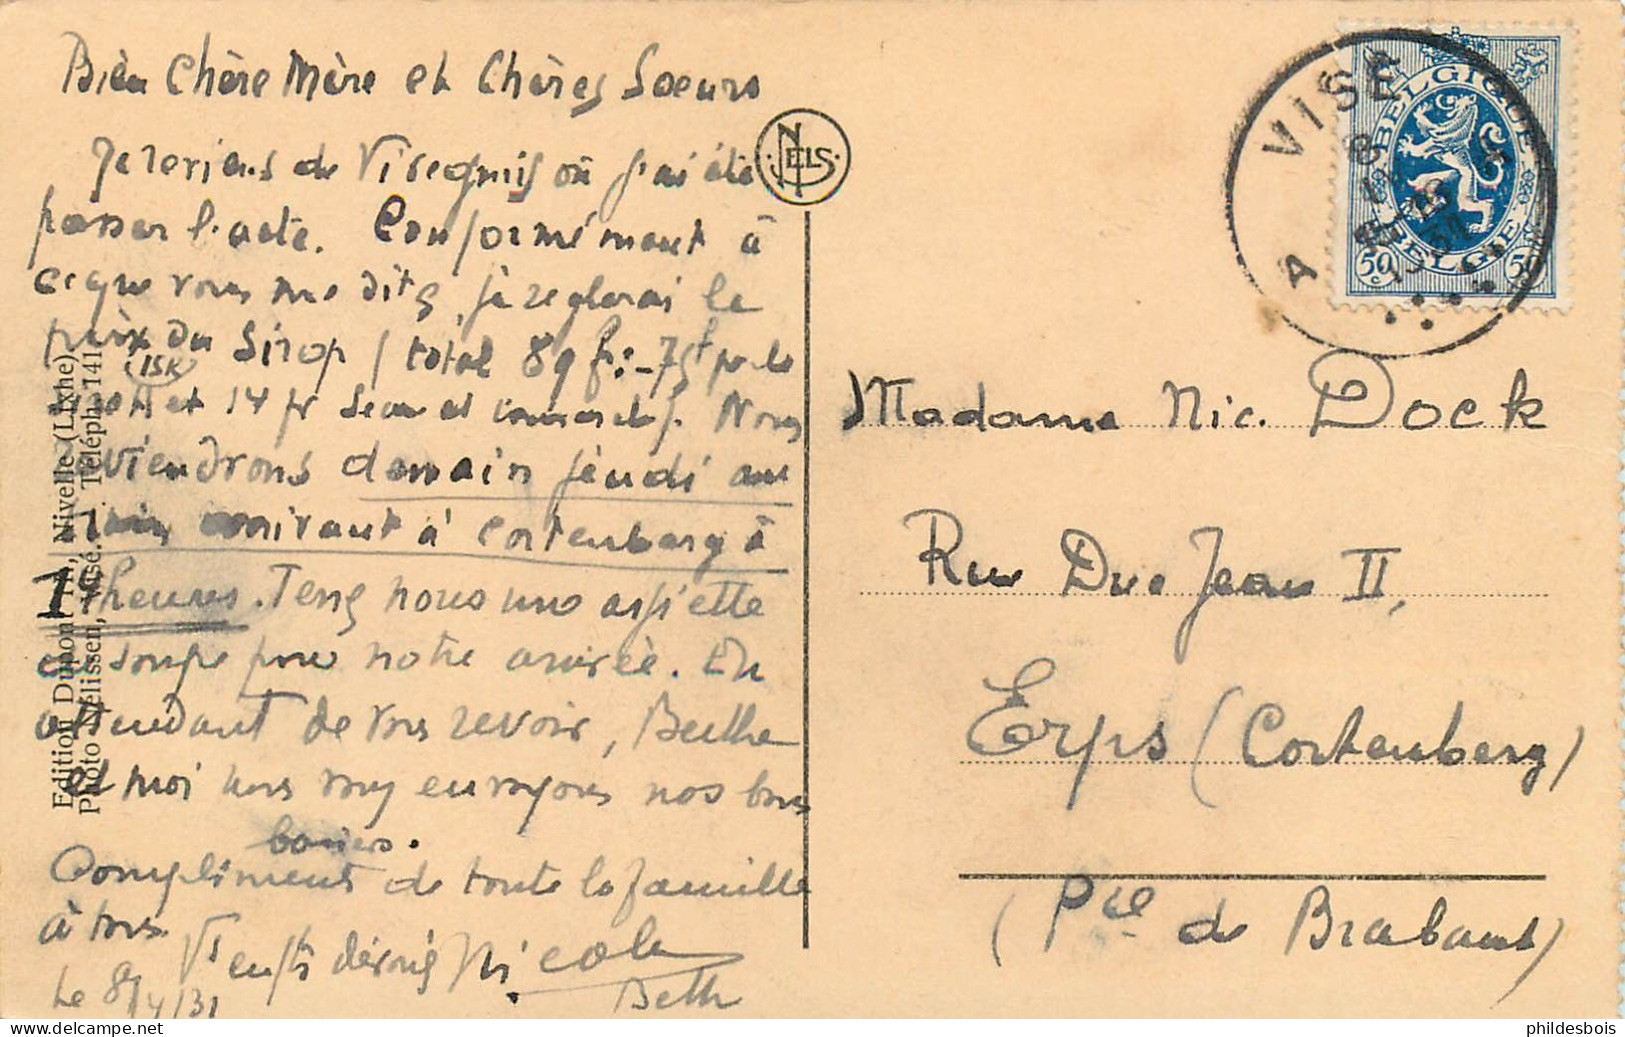 Bien Chère Mère et Chères Soeurs
Je reviens de Vise où j'ai été
passer l'acte. Conformément à
ce que vous me dites, je reglerai le
prix du Sirop / total 89 fr: - 75f pr le
(15K)
et 14 fr seau et Nous
viendrons demain jeudi au
arrivant à Cortenberg à
heures. Tenez nous une assiette
de soupe pour notre arrivée. En
attendant de vous revoir, Berthe
et moi vous envoyons nos bons
baisers.
Compliments de toute la famille
à tous.
Nicolas
Berth
Le 8/4/31
NELS
Edition Dupont Nivelle (Lixhe)
Photo Nélissen, Visé. Téléph. 141
VISÉ
A
8
1931
BELGIQUE
BELGIE
50 c
50 c
Madame Nic. Dock
Rue Duc Jean II,
Erps (Cortenberg)
(Pce de Brabant)
phildesbois